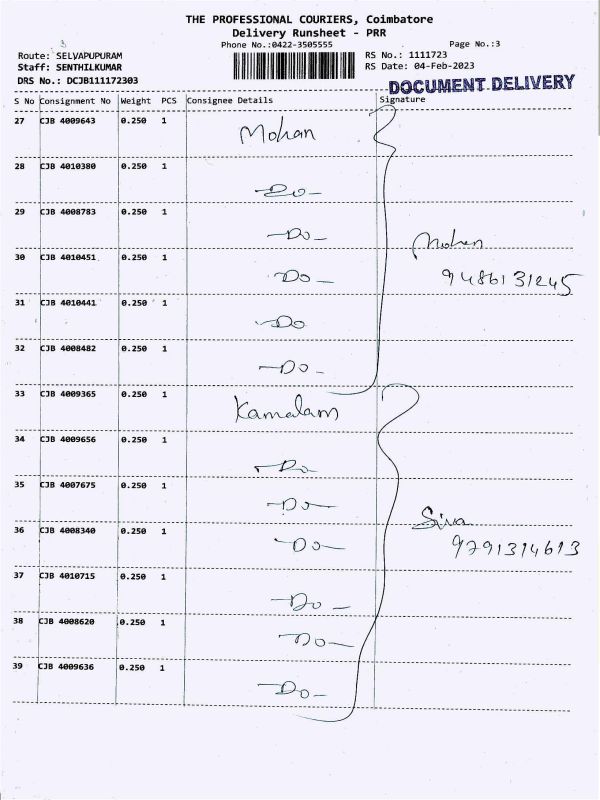 THE PROFESSIONAL COURIERS, Coimbatore
Delivery Runsheet - PRR
Phone No.:0422-3505555 Page No.:3
Route: SELVAPUPURAM RS No.: 1111723
Staff: SENTHILKUMAR RS Date: 04-Feb-2023
DRS No.: DCJB111172303
DOCUMENT DELIVERY
S No Consignment No Weight PCS Consignee Details Signature
27 CJB 4009643 0.250 1 Mohan
28 CJB 4010380 0.250 1 Do
29 CJB 4008783 0.250 1 Do
Mohan
30 CJB 4010451 0.250 1 Do
9486131245
31 CJB 4010441 0.250 1 Do
32 CJB 4008482 0.250 1 Do
33 CJB 4009365 0.250 1 Kamalam
34 CJB 4009656 0.250 1 Do
35 CJB 4007675 0.250 1 Do
Siva
36 CJB 4008340 0.250 1 Do
9791314613
37 CJB 4010715 0.250 1 Do
38 CJB 4008620 0.250 1 Do
39 CJB 4009636 0.250 1 Do